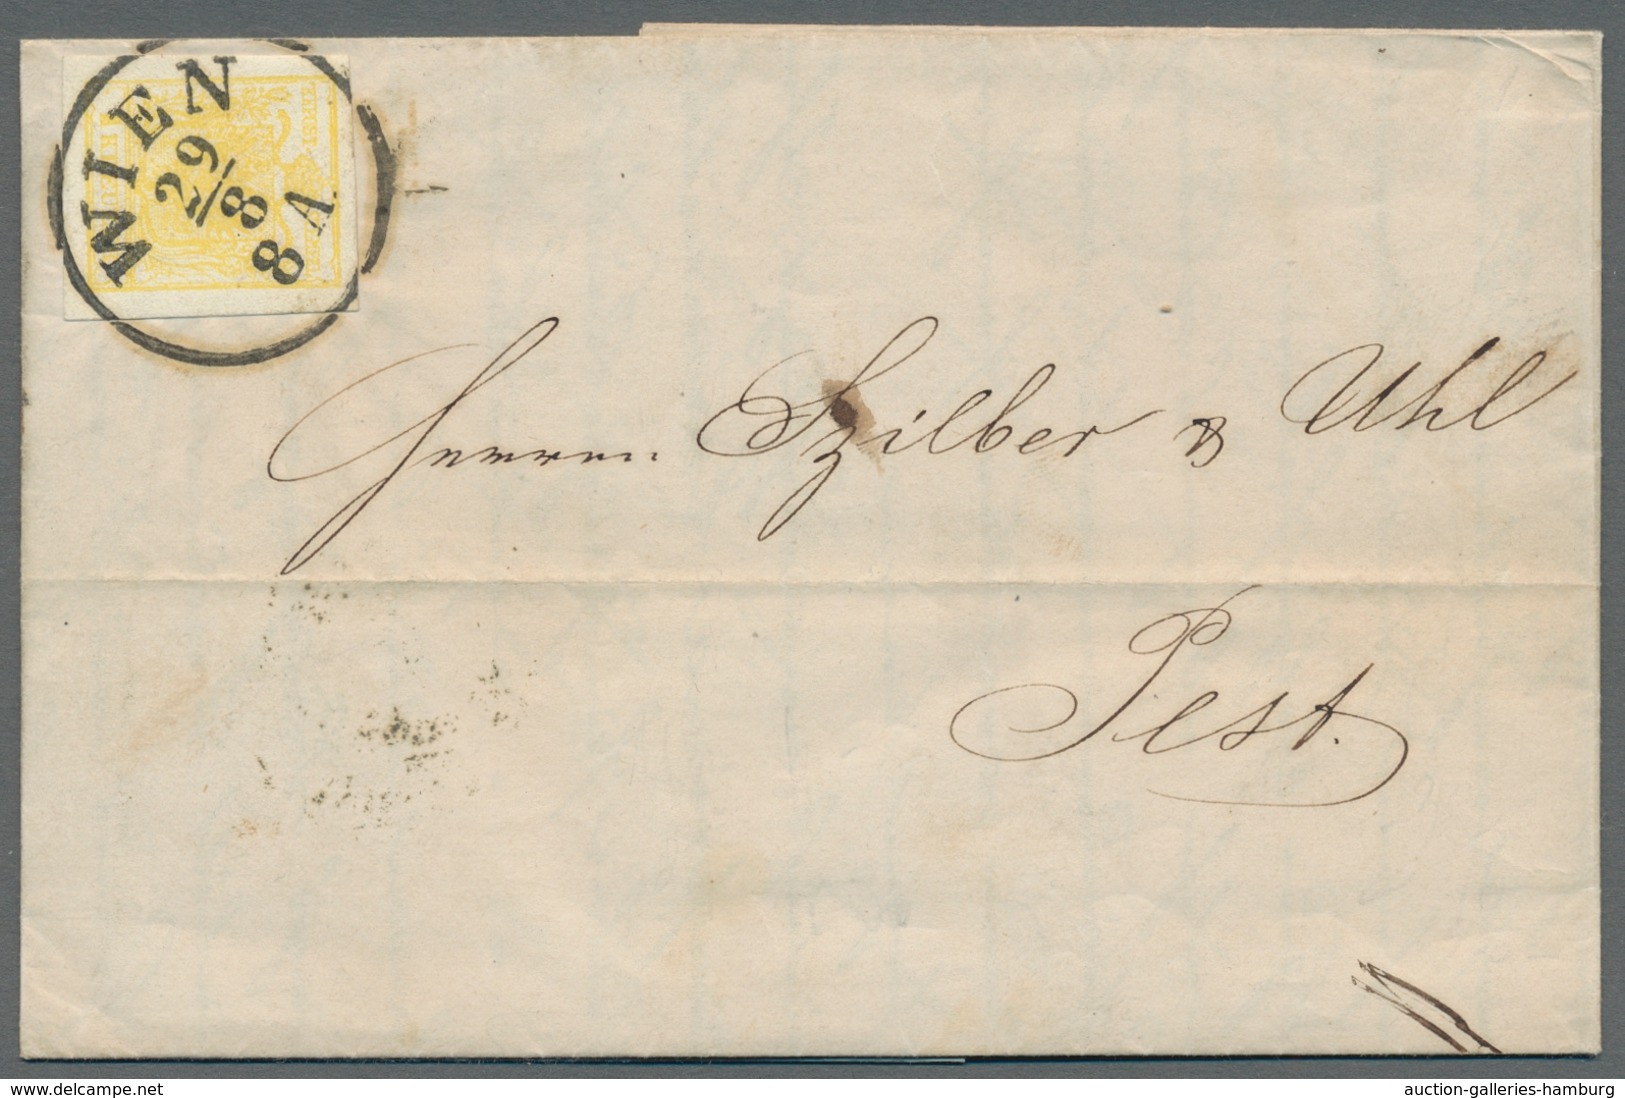 WIEN
29/8
8 A
Herren Szilber & Uhl
Pest.
www.delcampe.net
auction-galleries-hamburg